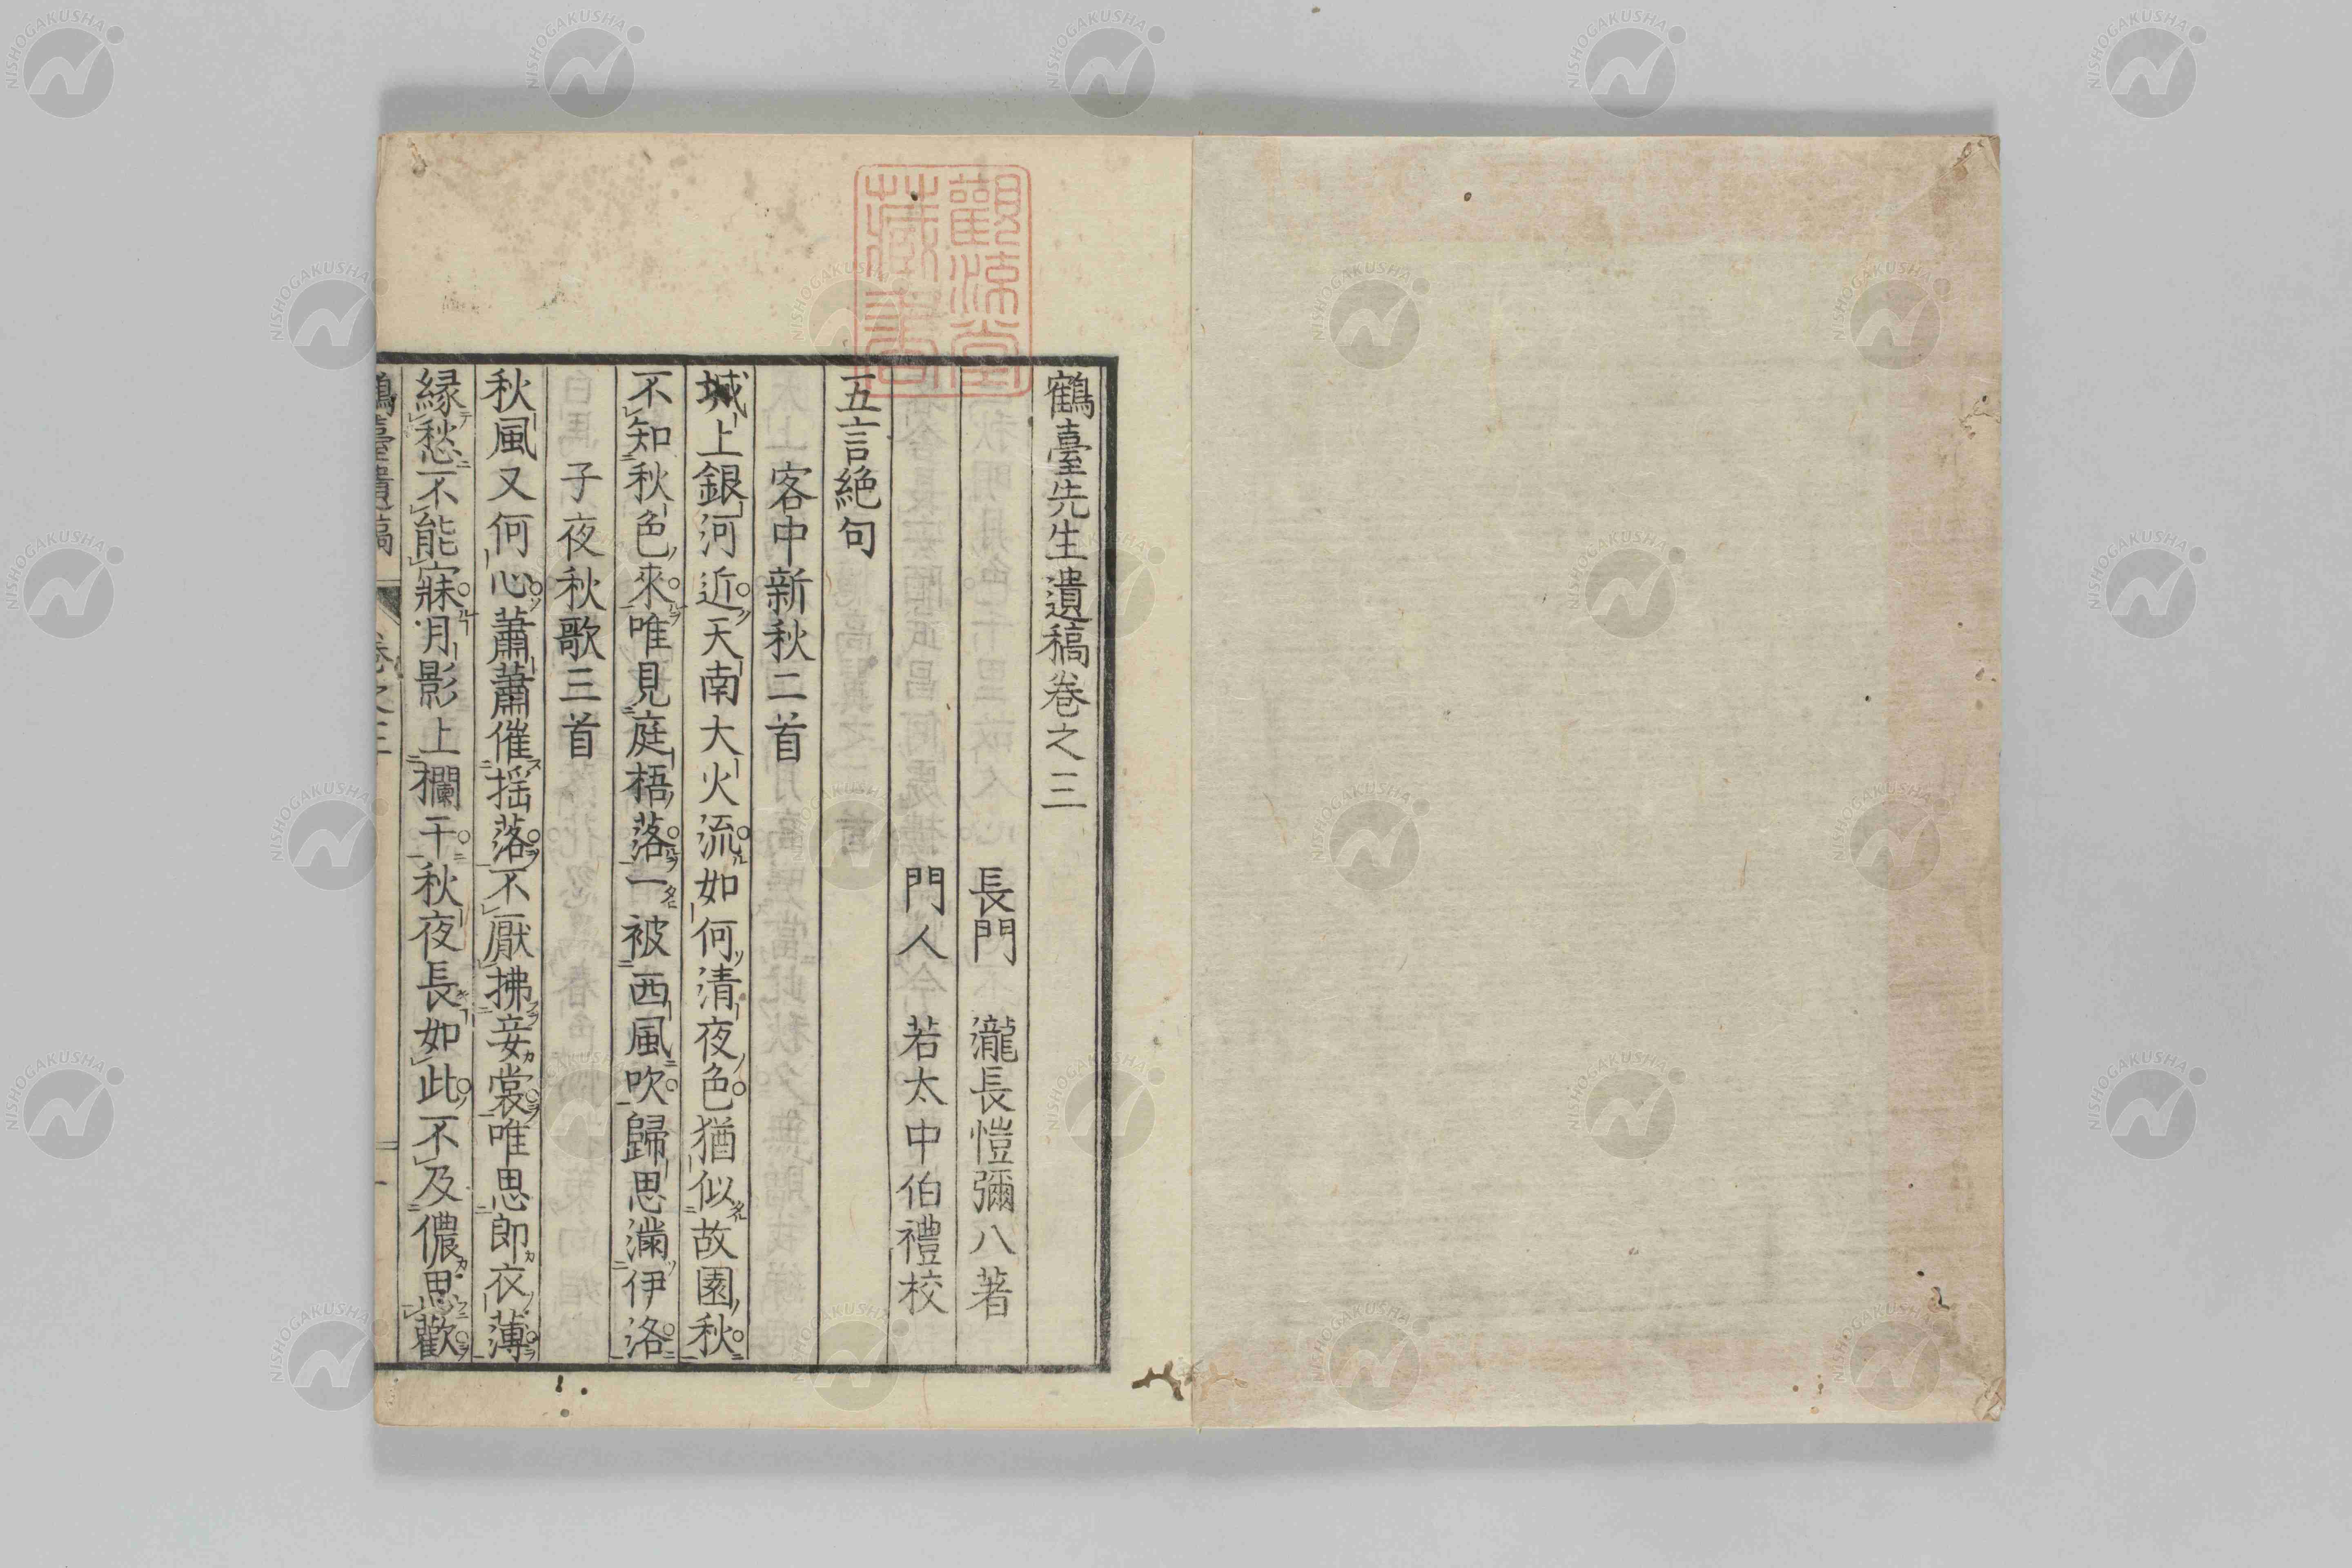 鶴臺先生遺稿卷之三
長門 瀧長愷彌八著
門人 若太中伯禮校
五言絶句
客中新秋二首
城上銀河近天南大火流如何清夜色猶似故園秋
不知秋色來唯見庭梧落一被西風吹歸思滿伊洛
子夜秋歌三首
秋風又何心蕭蕭催揺落不厭拂妾裳唯思郎衣薄
縁愁不能寐月影上欄干秋夜長如此不及儂思歡
鶴臺遺稿 卷之三
觀涼堂
藏書
NISHOGAKUSHA